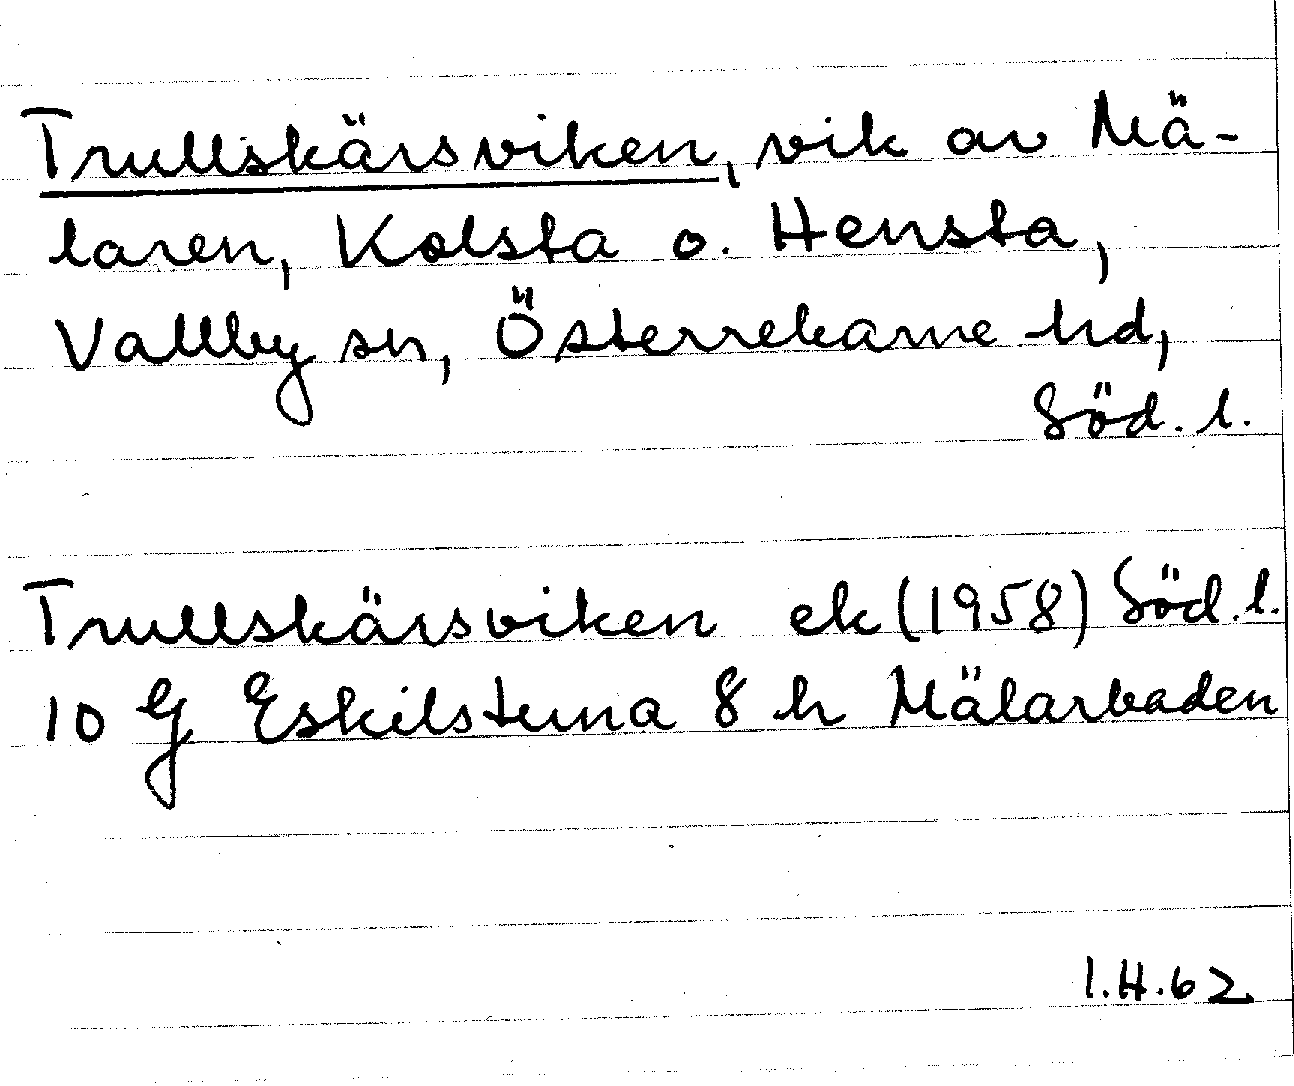 Trullskärsviken, vik av Mä-
laren, Kolsta o. Hensta,
Vallby sn, Österrekarne hd,
Söd. l.
Trullskärsviken ek (1958) Söd. l.
10 G Eskilstuna 8 h Mälarbaden
I.H.62